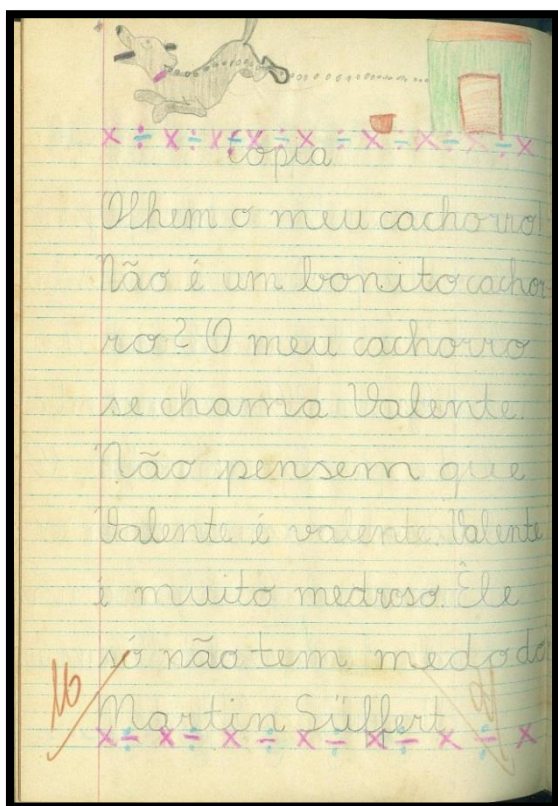 cópia
Olhem o meu cachorro!
Não é um bonito cachor-
ro? O meu cachorro
se chama Valente.
Não pensem que
Valente é valente. Valente
é muito medroso. Êle
só não tem medo do
Martin Sülfert
16